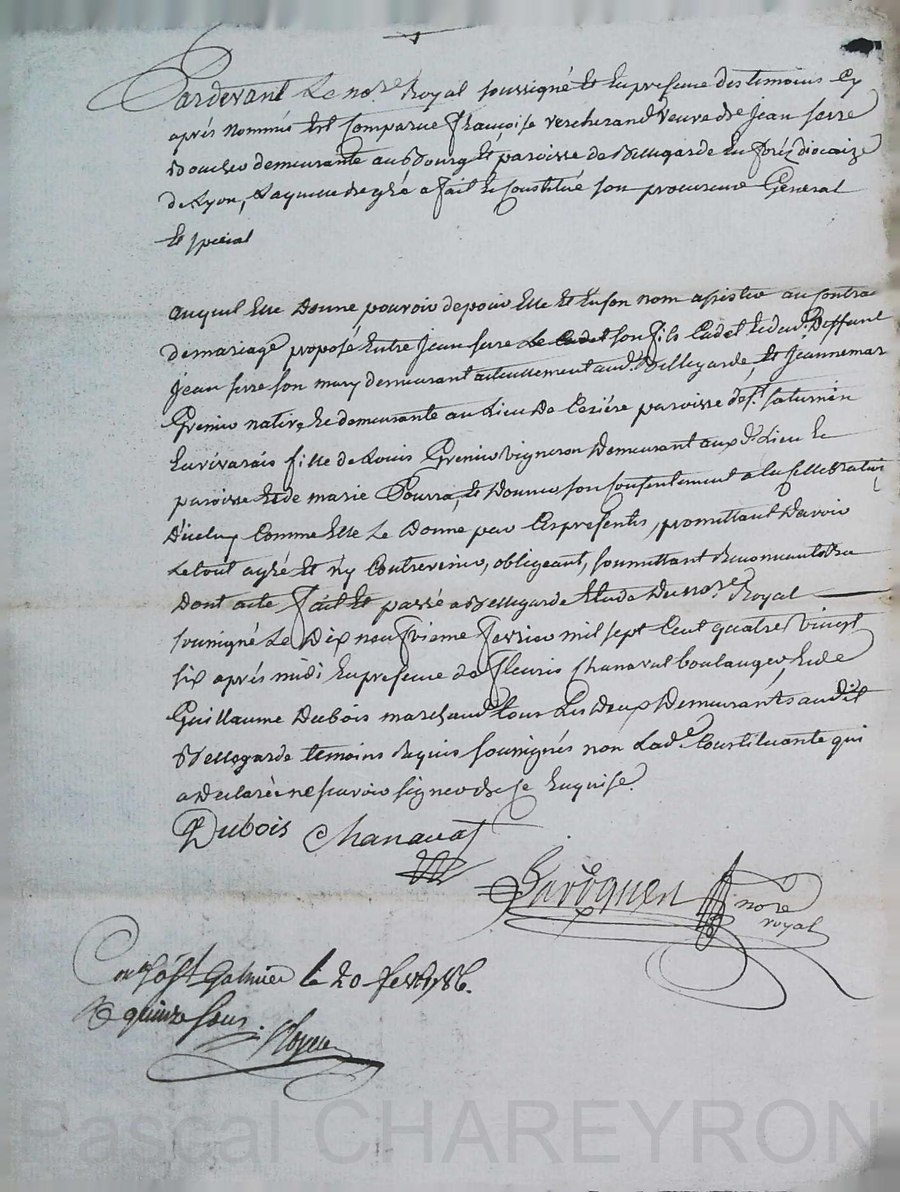 Pardevant Le no.re Royal soussigné Et En presence des temoins Cy
après nommés Est Comparue Françoise vercherand veuve de Jean serre
Boucher demeurante au Bourg Et paroisse de Bellegarde En forêz diocaize
de Lyon, Laquelle de gré a fait Et Constitué son procureur General
Et special
auquel Elle Donne pouvoir de pour Elle Et En son nom assister au Contra
de mariage proposé Entre Jean serre Le Cadet son fils Cadet Et de deffunt
Jean serre son mary demeurant actuellement aud. Bellegarde, Et Jeanne mar
Grenier native Et demeurante au Lieu De paroisse de s.t saturnin
En vivarais fille de Louis Grenier vigneron Demeurant aux d. Lieu Et
paroisse Et de marie Et Donner son Consentement a la Cellebration
D'icelluy Comme Elle Le Donne par Ces presentes, promettant D'avoir
Le tout agréé Et n'y Contrevenir, obligeant, soumettant Renonceant
Dont acte fait Et passé a Bellegarde Etude Du no.re Royal
soussigné Le Dix neufvieme fevrier mil sept Cent quatre vingt
six après midi En presence de Fleuris Chanavat boulanger, Et de
Guillaume Dubois marchand tous Les Deux Demeurants audit
Bellegarde temoins Requis soussignés non Lad.e Constituante qui
a Declarée ne savoir signer de ce Enquise.
Dubois Chanavat
no.re
royal
a s.t Galmier le 20 fevr. 1786.
R quinze sous.
Pascal CHAREYRON